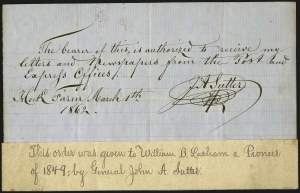 The bearer of this, is authorized to receive my
letters and Newspapers from the Post and
Express Offices,
J A Sutter
Hock Farm March 1th
1862.
This order was given to William B. Lasham a Pioneer
of 1849, by General John A. Sutter.